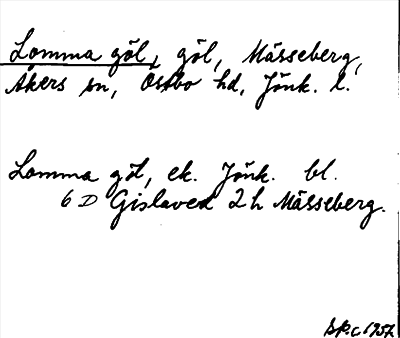 Lomma göl, göl, Mässeberg,
Åkers sn, Östbo hd, Jönk. l.
Lomma göl, ek. Jönk. bl.
6 D Gislaved 2h Mässeberg.
1957